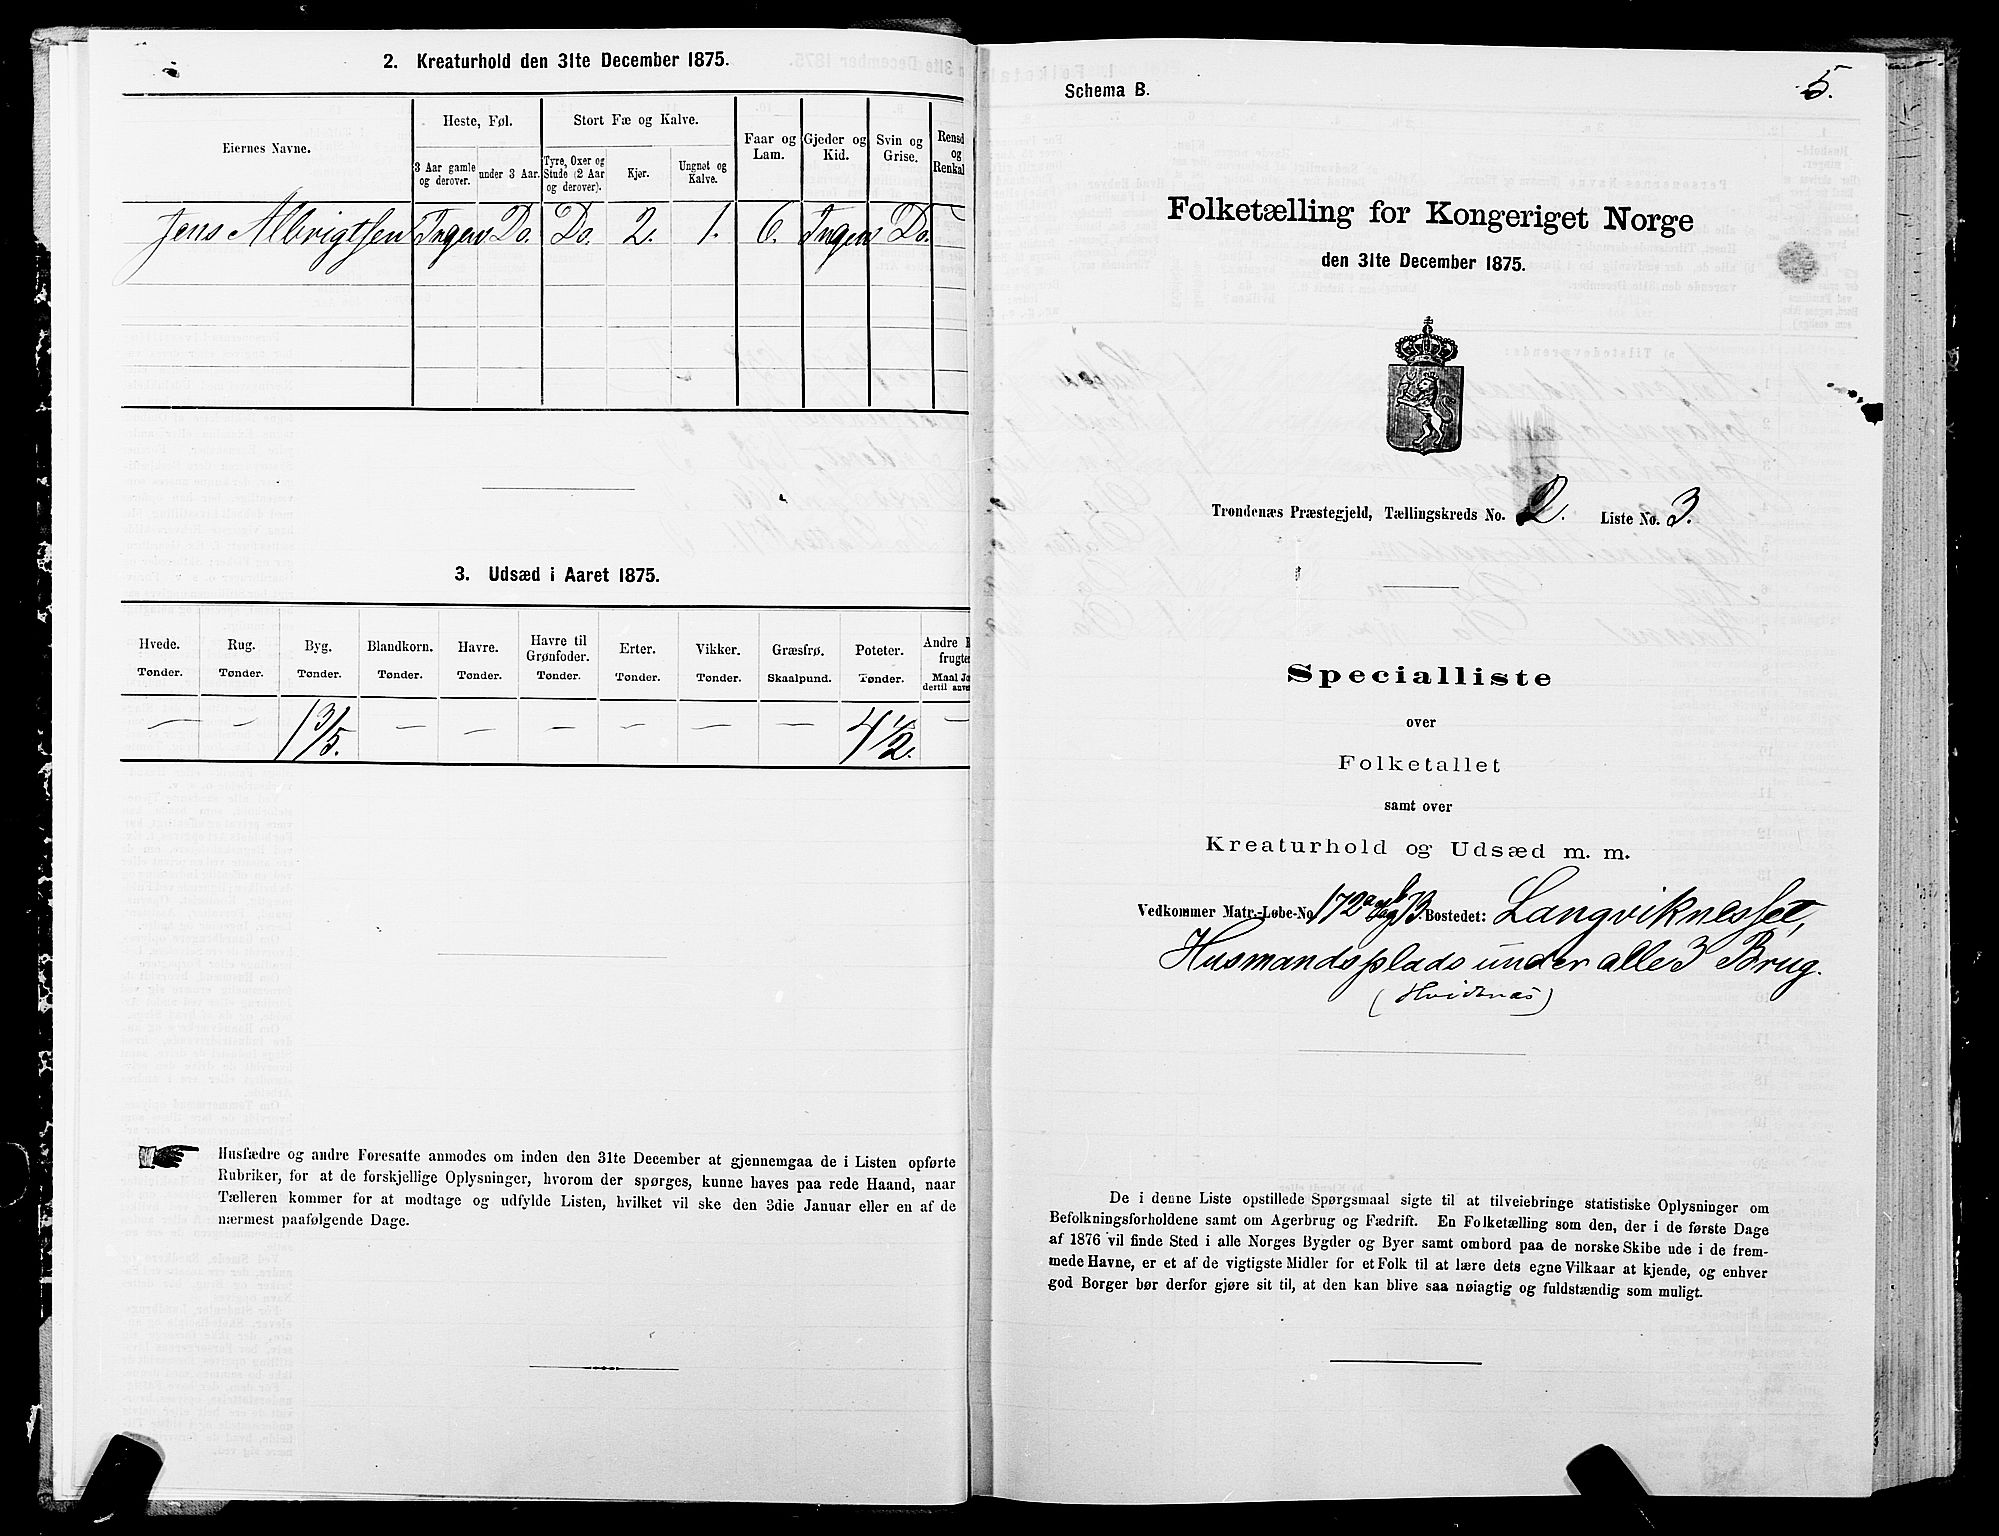 2. Kreaturhold den 31te December 1875.
Eiernes Navne.
Heste, Føl.
Stort Fæ og Kalve.
Faar og Lam.
Gjeder og Kid.
Svin og Grise.
Rensd
og
Renkal
3 Aar gamle og derover.
under 3 Aar.
Tyre, Oxer og Stude (2 Aar og derover).
Kjør.
Ungnøt og Kalve.
Jens Albrigtsen Ingen Do. Do. 2. 1. 6. Ingen Do. –
3. Udsæd i Aaret 1875.
Hvede. Rug. Byg. Blandkorn. Havre. Havre til Grønfoder. Erter. Vikker. Græsfrø. Poteter. Andre
frugte
Tønder. Tønder. Tønder. Tønder. Tønder. Tønder. Tønder. Tønder. Skaalpund. Tønder. Maal
dertil
— – 1 3/5. – — – – – — 4 1/2. –
Husfædre og andre Foresatte anmodes om inden den 31te December at gjennemgaa de i Listen opførte
Rubriker, for at de forskjellige Oplysninger, hvorom der spørges, kunne haves paa rede Haand, naar
Tælleren kommer for at modtage og udfylde Listen, hvilket vil ske den 3die Januar eller en af de
nærmest paafølgende Dage.
Schema B.
5.
Folketælling for Kongeriget Norge
den 31te December 1875.
Trondenæs Præstegjeld, Tællingskreds No. 2. Liste No. 3.
Specialliste
over
Folketallet
samt over
Kreaturhold og Udsæd m. m.
Vedkommer Matr.-Løbe-No. 172 Bostedet: Langviknesset,
Husmandsplads under alle 3 Brug.
(Hvidenæs)
De i denne Liste opstillede Spørgsmaal sigte til at tilveiebringe statistiske Oplysninger om
Befolkningsforholdene samt om Agerbrug og Fædrift. En Folketælling som den, der i de første Dage
af 1876 vil finde Sted i alle Norges Bygder og Byer samt ombord paa de norske Skibe ude i de frem-
mede Havne, er et af de vigtigste Midler for et Folk til at lære dets egne Vilkaar at kjende, og enhver
god Borger bør derfor gjøre sit til, at den kan blive saa nøiagtig og fuldstændig som muligt.